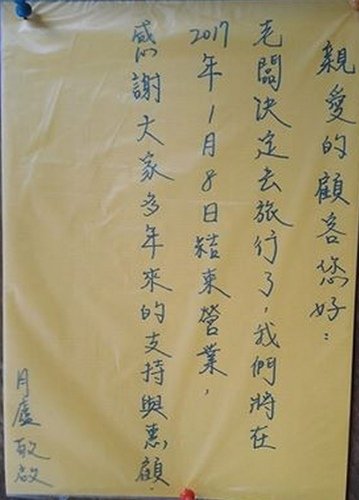 親愛的顧客您好：
老闆決定去旅行了，我們將在
2017年1月8日結束營業，
感謝大家多年來的支持與惠顧．
月廬敬啟